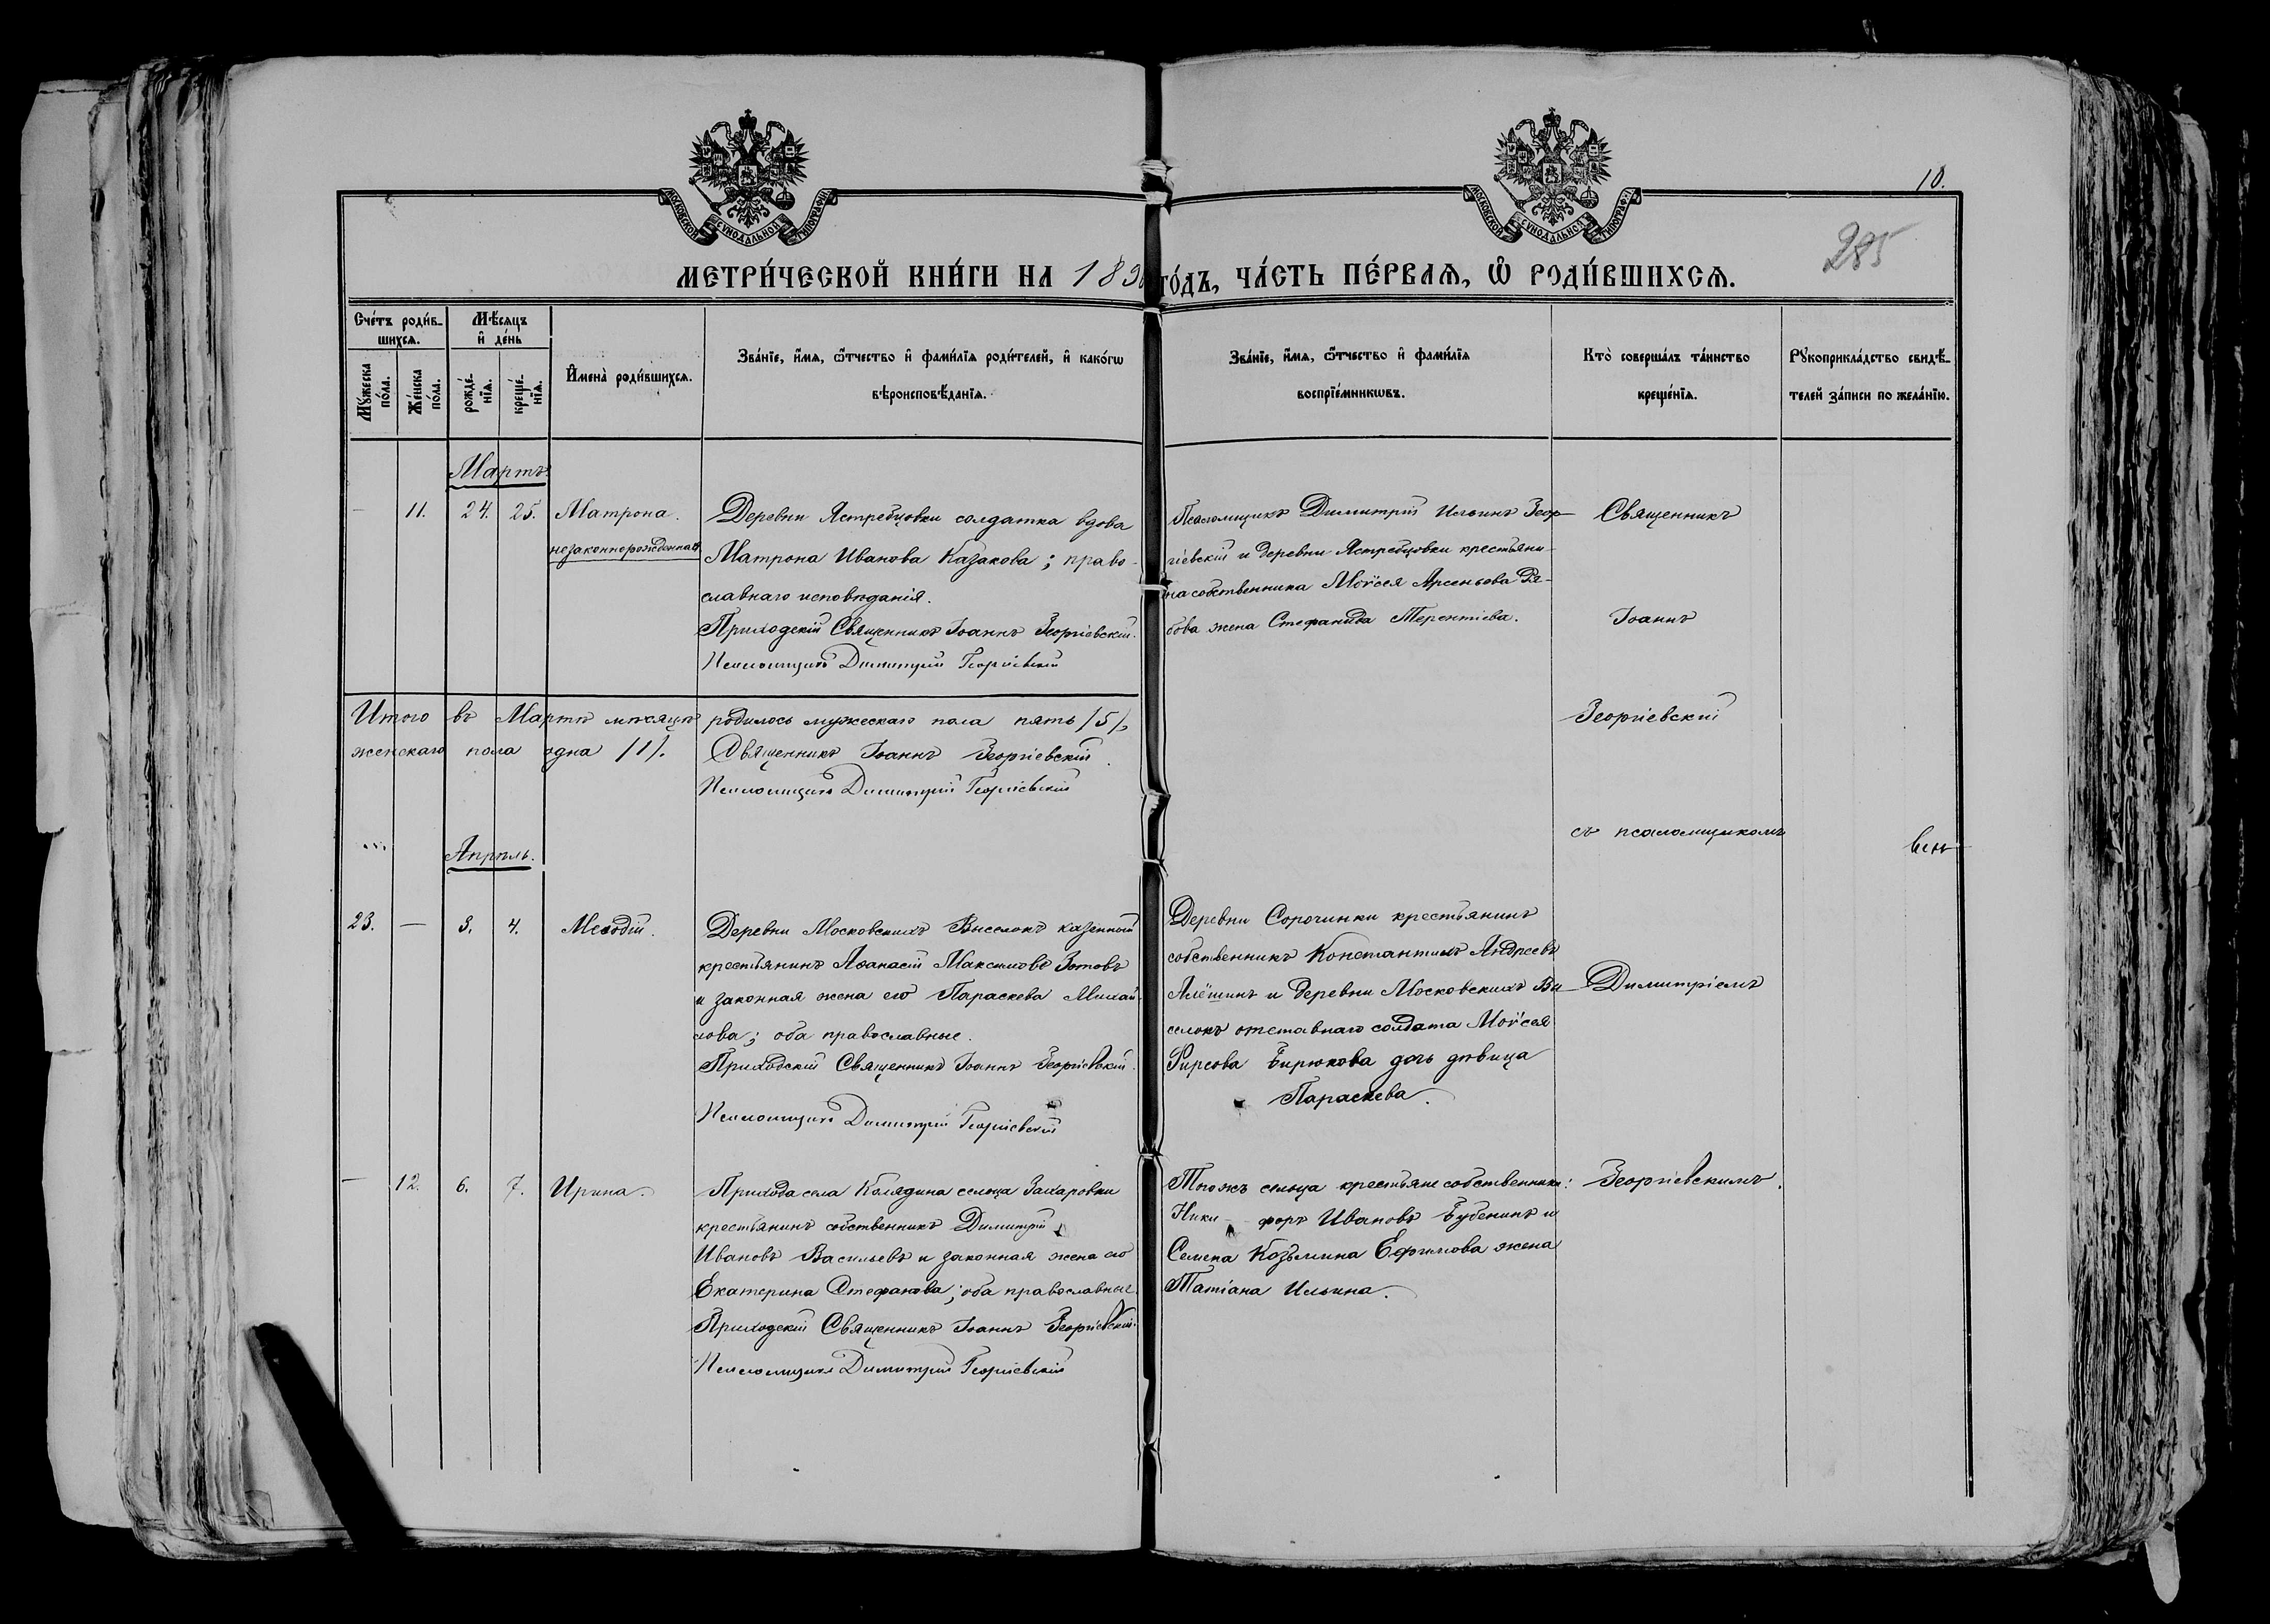 10.
285
МОСКОВСКОЙ СѴНОДАЛЬНОЙ ТИПОГРАФІИ
МОСКОВСКОЙ СѴНОДАЛЬНОЙ ТИПОГРАФІИ
МЕТРИ́ЧЕСКОЙ КНИ́ГИ НА 189 ГО́ДЪ, ЧА́СТЬ ПЕ́РВАѦ, Ѡ҆ РОДИ́ВШИХСѦ.
Сче́тъ роди́в-
шихсѧ.
Мѣ́сѧцъ
и҆ де́нь
Мꙋ́жеска по́ла.
Же́нска по́ла.
рожде́-нїѧ.
креще́-нїѧ.
И҆мена̀ роди́вшихсѧ.
Зва́нїе, и҆́мѧ, ѻ҆́тчество и҆ фами́лїѧ роди́телей, и҆ како́гѡ
вѣроисповѣ́данїѧ.
Зва́нїе, и҆́мѧ, ѻ҆́тчество и҆ фами́лїѧ
воспрїе́мникѡвъ.
Кто̀ соверша́лъ та́инство
креще́нїѧ.
Рꙋкоприкла́дство свидѣ́-
телей за́писи по жела́нїю.
Мартъ
— 11. 24. 25. Матрона.
незаконнорожденная
Деревни Ястребцовки солдатка вдова
Матрона Иванова Казакова; право-
славнаго исповѣданія.
Приходскій Священникъ Іоаннъ Георгіевскій.
Псаломщикъ Димитрій Георгіевскій
Псаломщикъ Димитрій Ильинъ Геор-
гіевскій и деревни Ястребцовки крестьяни-
на собственника Моѵсея Арсеньева Ря-
бова жена Стефанида Терентіева.
Священникъ
Іоаннъ
Георгіевскій
съ псаломщикомъ
Димитріемъ
Георгіевскимъ.
Итого въ Мартѣ мѣсяцѣ родилось мужескаго пола пять /5/,
женскаго пола одна /1/. Священникъ Іоаннъ Георгіевскій.
Псаломщикъ Димитрій Георгіевскій
Апрѣль.
23. — 3. 4. Меѳодій.
Деревни Московскихъ Выселокъ казенный
крестьянинъ Аѳанасій Максимовъ Зотовъ
и законная жена его Параскева Михай-
лова; оба православные.
Приходскій Священникъ Іоаннъ Георгіевскій.
Псаломщикъ Димитрій Георгіевскій
Деревни Сорочинки крестьянинъ
собственникъ Константинъ Андреевъ
Алёшинъ и деревни Московскихъ Вы-
селокъ отставнаго солдата Моѵсея
Фирсова Бирюкова дочь дѣвица
Параскева.
— 12. 6. 7. Ирина.
Прихода села Колядина сельца Захаровки
крестьянинъ собственникъ Димитрій
Ивановъ Васильевъ и законная жена его
Екатерина Стефанова; оба православные.
Приходскій Священникъ Іоаннъ Георгіевскій.
Псаломщикъ Димитрій Георгіевскій
Тогожъ сельца крестьяне собственники:
Ники-форъ Ивановъ Бубенинъ и
Семена Козьмина Ефимова жена
Татіана Ильина.